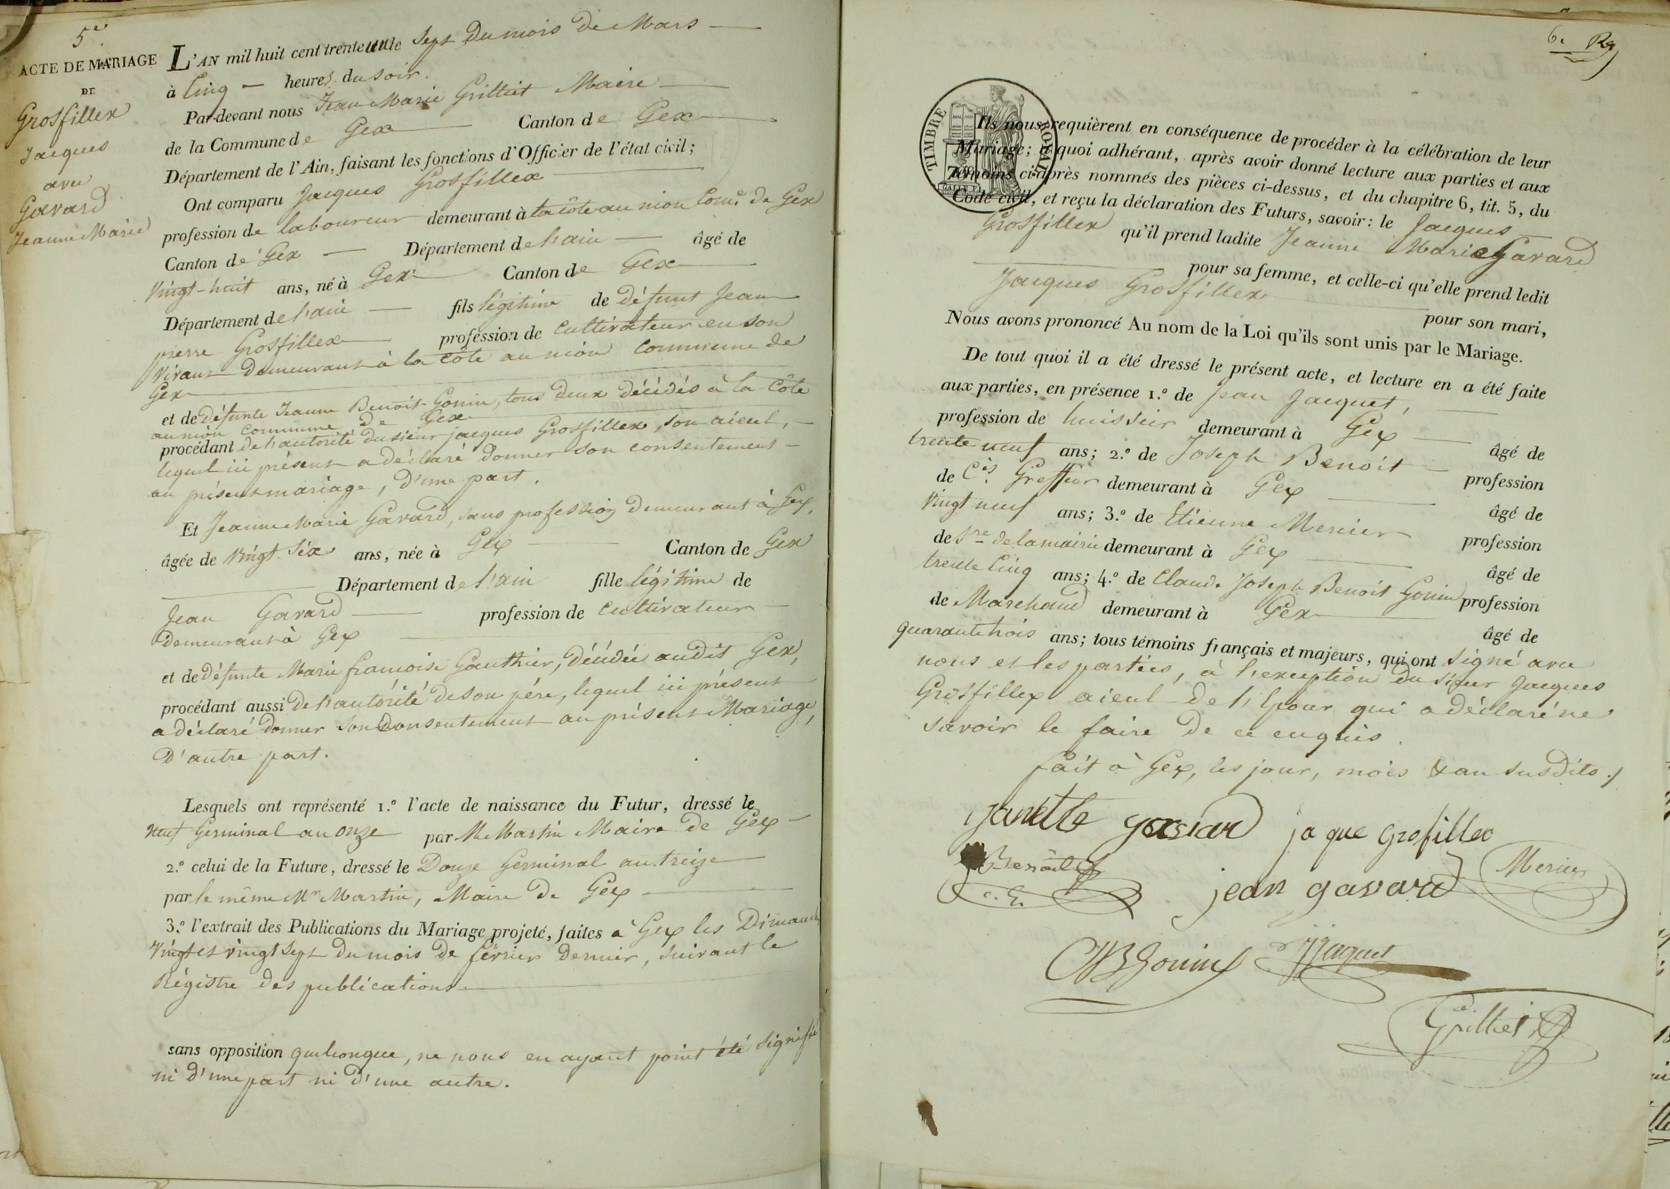 5e.
ACTE DE MARIAGE
DE
Grosfillex
Jacques
avec
Gavard
Jeanne Marie
L'AN mil huit cent trente un le sept du mois de Mars
à Cinq heures du soir.
Par-devant nous Jean Marie Grilliet Maire
de la Commune de Gex Canton de Gex
Département de l'Ain, faisant les fonctions d'Officier de l'état civil;
Ont comparu Jacques Grosfillex
profession de laboureur demeurant à la côte au nion Come. de Gex
Canton de Gex Département de l'ain âgé de
Vingt-huit ans, né à Gex Canton de Gex
Département de l'ain fils légitime de défunt Jean
pierre Grosfillex profession de cultivateur en son
vivant demeurant à la côte au nion commune de
Gex
et de défunte Jeanne Benoit-Gonin, tous deux décédés à la Côte
au nion Commune de Gex
procédant de l'autorité du sieur jacques Grosfillex, son aïeul,
lequel ici présent a déclaré donner son consentement
au présent mariage, d'une part.
Et Jeanne Marie Gavard, sans profession demeurant à Gex,
âgée de Vingt Six ans, née à Gex Canton de Gex
Département de l'ain fille légitime de
Jean Gavard profession de cultivateur
demeurant à Gex
et de défunte Marie françoise Gauthier, décédée audit Gex,
procédant aussi de l'autorité de son père, lequel ici présent
a déclaré donner son consentement au présent Mariage,
D'autre part.
Lesquels ont représenté 1.º l'acte de naissance du Futur, dressé le
neuf Germinal an onze par M. Martin Maire de Gex
2.º celui de la Future, dressé le Douze Germinal an treize
par le même Mr Martin, Maire de Gex
3.º l'extrait des Publications du Mariage projeté, faites à Gex les Dimanches
Vingt et vingt Sept du mois de février dernier, suivant le
Régistre des publications
sans opposition quelconque, ne nous en ayant point été signifié
ni d'une part ni d'une autre.
6.
TIMBRE ROYAL
Ils nous requièrent en conséquence de procéder à la célébration de leur
Mariage; à quoi adhérant, après avoir donné lecture aux parties et aux
Témoins ci-après nommés des pièces ci-dessus, et du chapitre 6, tit. 5, du
Code civil, et reçu la déclaration des Futurs, savoir: le Jacques
Grosfillex qu'il prend ladite Jeanne Marie Gavard
pour sa femme, et celle-ci qu'elle prend ledit
Jacques Grosfillex pour son mari,
Nous avons prononcé Au nom de la Loi qu'ils sont unis par le Mariage.
De tout quoi il a été dressé le présent acte, et lecture en a été faite
aux parties, en présence 1.º de Jean Jacquet,
profession de huissier demeurant à Gex âgé de
trente neuf ans; 2.º de Joseph Benoit profession
de Cis. Greffier demeurant à Gex âgé de
Vingt neuf ans; 3.º de Etienne Mercier profession
de Sre de la mairie demeurant à Gex âgé de
trente Cinq ans; 4.º de Claude Joseph Benoit Gonin profession
de Marchand demeurant à Gex âgé de
quarante trois ans; tous témoins français et majeurs, qui ont signé avec
nous et les parties, à l'exception du Sieur Jacques
Grosfillex aïeul de l'époux qui a déclaré ne
savoir le faire de ce enquis.
fait à Gex, les jour, mois & an susdits./
janette gavard jaque Grosfillex
Benoit jean gavard Mercier
c. G.
CJBGonin JJacquet
Grilliet